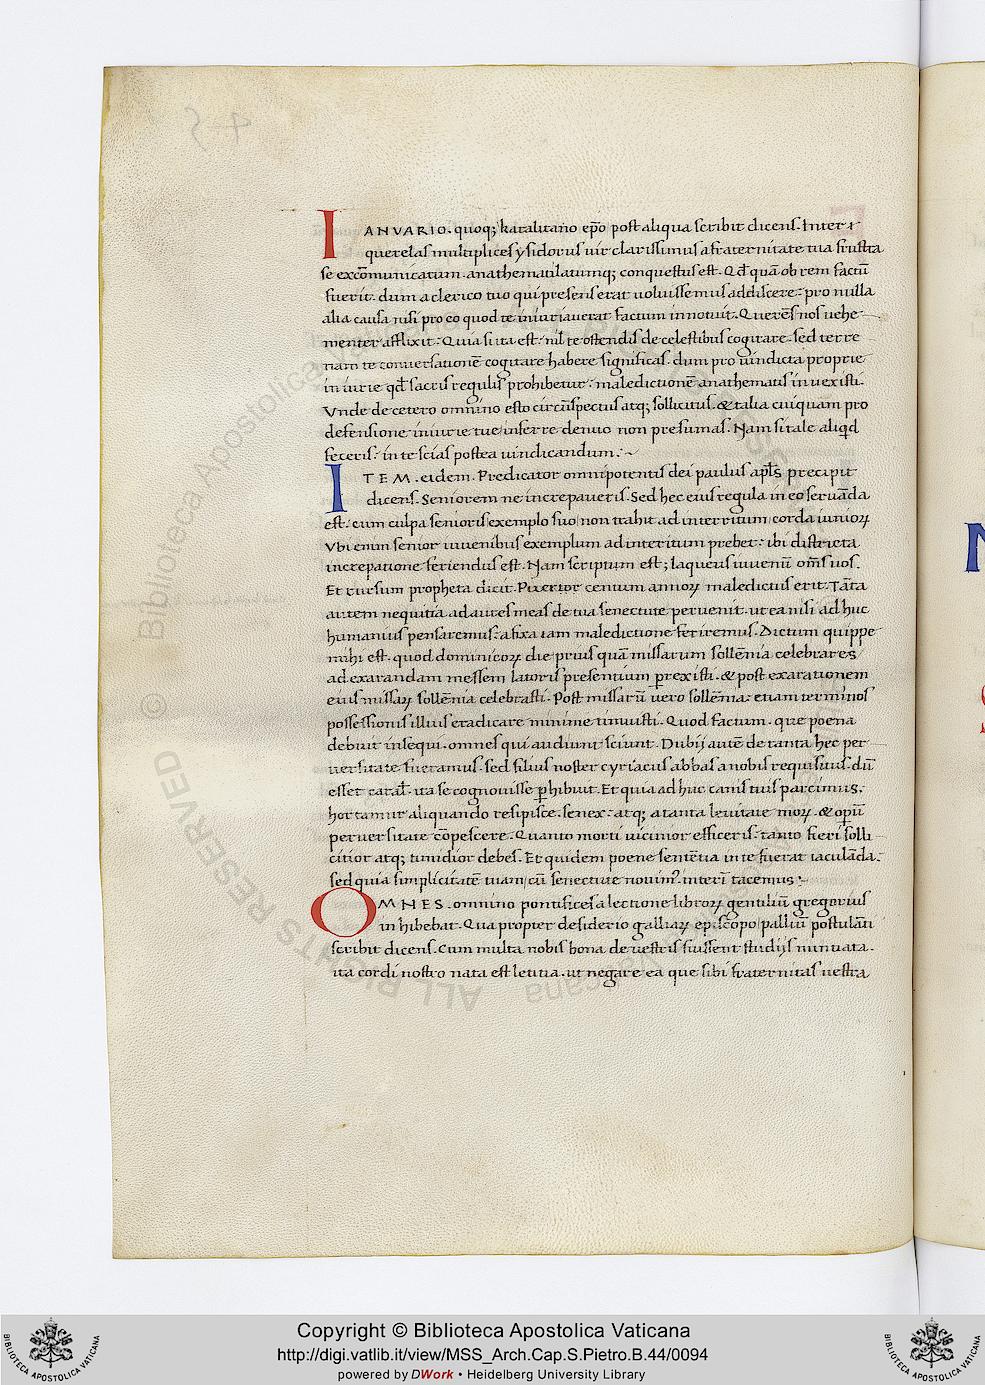 IANVARIO. quoq; karalitano ep̄o post aliqua scribit dicens. Inter &
querelas multiplices ysidorus uir clarissimus a fraternitate tua frustra
se excōmunicatum. anathematilatumq; conquestus est. Qd̄ quā ob rem factū
fuerit. dum a clerico tuo qui presens erat uoluissemus addiscere: pro nulla
alia causa nisi pro eo quod te iniuriauerat factum innotuit. Querēs nos uehe-
menter afflixit: Quia si ita est: nil te ostendis de celestibus cogitare. sed terre
nam te conuersationē cogitare habere significas. dum pro uindicta proprie
iniurie qd̄ sacris regulis prohibetur: maledictionē anathematis inuexisti.
Vnde de cetero omnino esto circūspectus atq; sollicitus. & talia cuiquam pro
defensione iniurie tue inferre denuo non presumas. Nam si tale aliqd
feceris: in te scias postea uindicandum: ~
ITEM. eidem. Predicator omnipotentis dei paulus apl̄s precipit
dicens. Seniorem ne increpaueris. Sed hec eius regula in eo seruāda
est: cum culpa senioris exemplo suo non trahit ad interitum corda iunioꝝ
Vbi enim senior iuuenibus exemplum ad interitum prebet: ibi districta
increpatione feriendus est. Nam scriptum est; laqueus iuuenū om̄s uos.
Et rursum propheta dicit. Peccator centum annoꝝ maledictus erit. Tāta
autem nequitia ad aures meas de tua senectute peruenit. ut ea nisi ad huc
humanius pensaremus: a fixa iam maledictione feriremus. Dictum quippe
mihi est. quod dominicoꝝ die prius quā missarum sollēnia celebrares
ad exarandam messem latoris presentium p̄rexisti. & post exarationem
eius missaꝝ sollēnia celebrasti. Post missarū uero sollēnia: etiam terminos
possessionis illius eradicare minime timuisti. Quod factum. que poena
debuit insequi. omnes qui audiunt sciunt. Dubij autē de tanta hec per
uersitate fueramus. sed filius noster cyriacus abbas a nobis requisitus. dū
esset caral̄. ita se cognouisse p̄hibuit. Et quia ad huc canis tuis parcimus.
hortamur aliquando resipisce. senex: atq; a tanta leuitate moꝝ. & operū
peruersitate cōpescere. Quanto morti uicinior efficeris: tanto fieri solli
citior atq; timidior debes. Et quidem poene sentētia in te fuerat iaculāda.
sed quia simplicitatē tuam cū senectute nouim᷒. interī tacemus:-
OMNES. omnino pontifices a lectione libroꝝ gentiliū gregorius
inhibebat. Qua propter desiderio galliaꝝ episcopo palliū postulāti
scribit dicens. Cum multa nobis bona de uestris fuissent studijs nuntiata.
ita cordi nostro nata est letitia. ut negare ea que sibi fraternitas uestra
© Biblioteca Apostolica Vaticana ALL RIGHTS RESERVED
Copyright © Biblioteca Apostolica Vaticana
http://digi.vatlib.it/view/MSS_Arch.Cap.S.Pietro.B.44/0094
powered by DWork • Heidelberg University Library
BIBLIOTECA APOSTOLICA VATICANA
BIBLIOTECA APOSTOLICA VATICANA